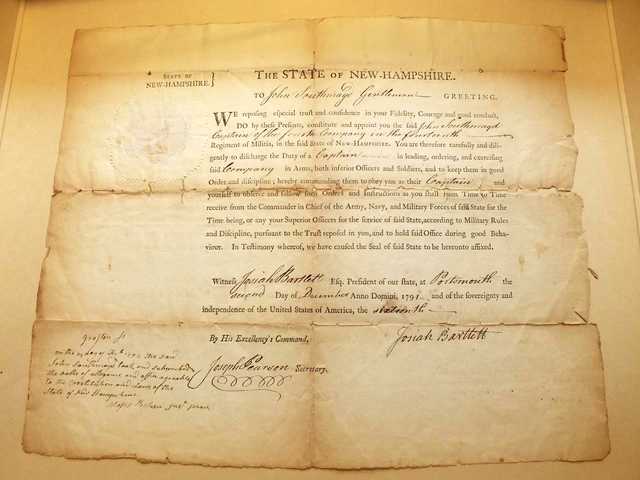 STATE OF
NEW-HAMPSHIRE.
THE STATE OF NEW-HAMPSHIRE.
TO John Southmayd Gentleman GREETING.
WE reposing especial trust and confidence in your Fidelity, Courage and good conduct,
DO by these Presents, constitute and appoint you the said John Southmayd
Captain of the fourth Company in the fourteenth
Regiment of Militia, in the said State of NEW-HAMPSHIRE. You are therefore carefully and dili-
gently to discharge the Duty of a Captain in leading, ordering, and exercising
said Company in Arms, both inferior Officers and Soldiers, and to keep them in good
Order and discipline; hereby commanding them to obey you as their Captain and
yourself to observe and follow such Orders and Instructions as you shall from Time to Time
receive from the Commander in Chief of the Army, Navy, and Military Forces of said State for the
Time being, or any your Superior Officers for the service of said State, according to Military Rules
and Discipline, pursuant to the Trust reposed in you, and to hold said Office during good Beha-
viour. In Testimony whereof, we have caused the Seal of said State to be hereunto affixed.
Witness Josiah Bartlett Esq. President of our state, at Portsmouth the
second Day of December Anno Domini, 1791 and of the sovereignty and
independence of the United States of America, the sixteenth
Josiah Bartlett
By His Excellency's Command,
Joseph Pearson Secretary.
Grafton Ss
on the day of 179 the said
John Southmayd took and subscribed
the oaths of allegiance and office agreeable
to the Constitution and Laws of the
State of New Hampshire